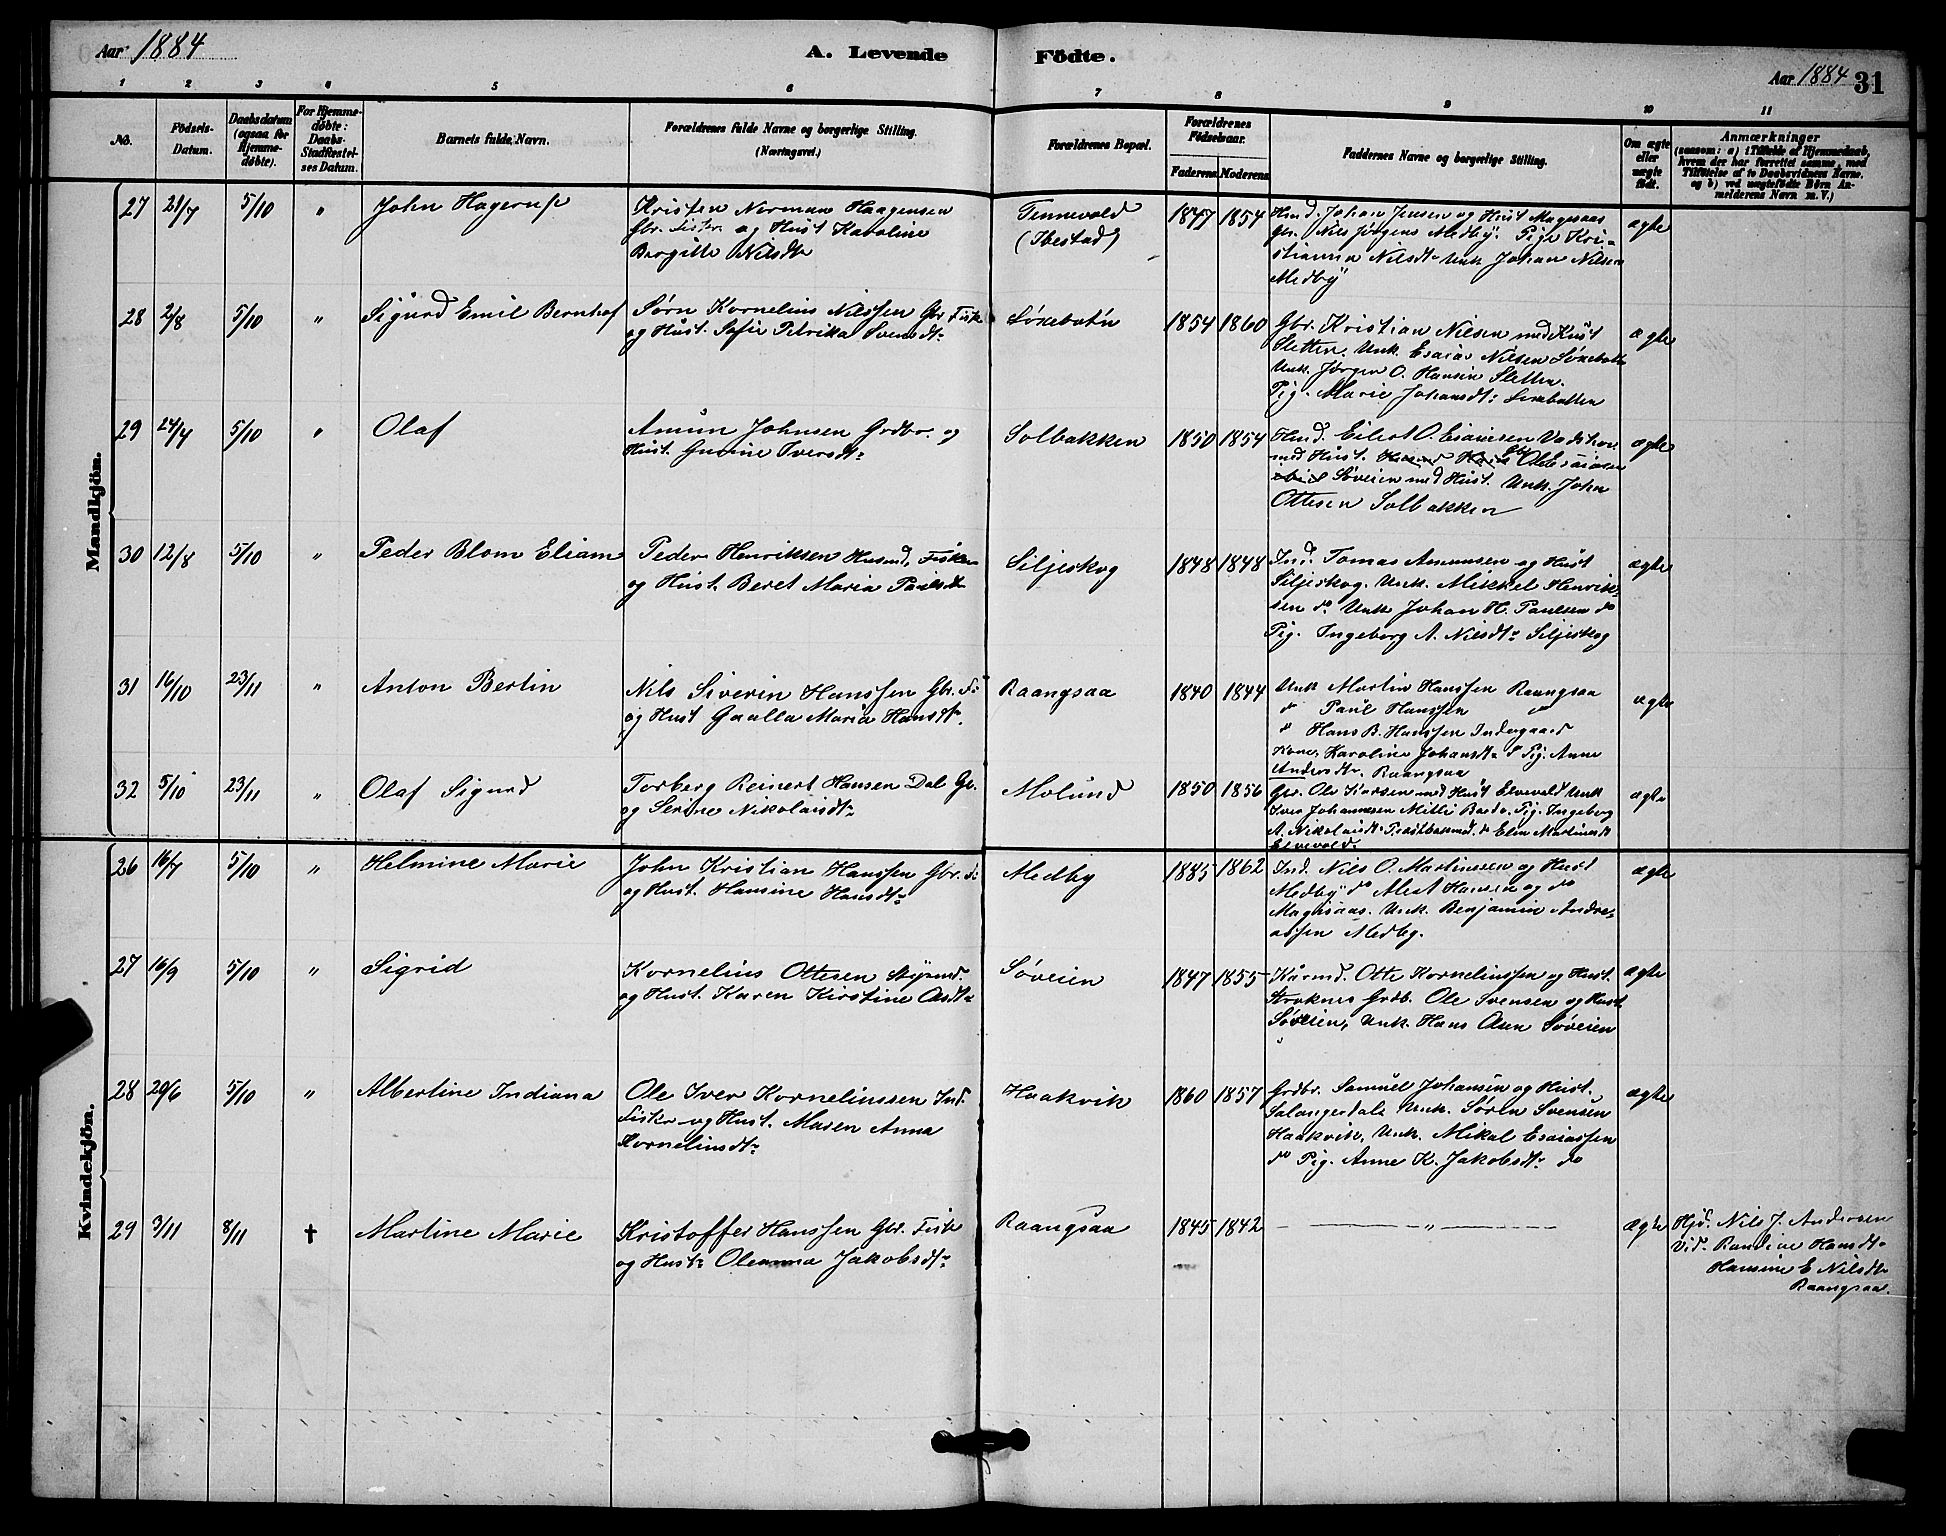 Aar 1884
A. Levende
Födte.
Aar 1884
31
1 2 3 4 5 6 7 8 9 10 11
No.
Födsels-
Datum.
Daabsdatum
(ogsaa for
Hjemme-
døbte).
For Hjemme-
døbte:
Daabs-
Stadfæstel-
ses Datum.
Barnets fulde Navn.
Forældrenes fulde Navne og borgerlige Stilling.
(Næringsvei.)
Forældrenes Bopæl.
Forældrenes
Födselsaar.
Faderens
Moderens
Faddernes Navne og borgerlige Stilling.
Om ægte
eller
uægte
født.
Anmærkninger
(saasom: a) i Tilfælde af Hjemmedaab,
hvem der har forrettet samme, med
Tilföielse af to Daabsvidners Navne,
og b) ved uægtefödte Börn An-
melderens Navn m. V.)
Mandkjön.
27 21/7 5/10 " John Hagerup
Kristen Norman Haagensen
Gbr. Fisk. og Hust Karoline
Bergitte Nilsdtr
Tennevold
(Ibestad)
1847 1854
Husmd. Johan Jensen og Hust Magesaas
Gbr. Nils Jørgens Medby. Pige Kri-
stianna Nilsdtr Unk Johan Nilsen
Medby
ægte
28 2/8 5/10 " Sigurd Emil Bernhof
Sørn Kornelius Nilssen Gbr Fisk
og Hust. Sofie Petrika Svensdtr
Søxebotn
1854 1860
Gbr. Kristian Nilsen med Hust
Sletten. Unk. Esaias Nilsen Søxebotn
Unk. Jørgen O. Hansen Sletten.
Pig. Marie Johansdtr Sexebotten
ægte
29 24/7 5/10 " Olaf
Amun Johnsen Grdbr. og
Hust. Gurine Iversdtr
Solbakken
1850 1854
Husmd. Eilert O. Esaiesen
med Hust. Ole Esaiasen
Søveien med Hust. Unk. John
Ottesen Solbakken
ægte
30 12/8 5/10 " Peder Blom Eliam
Peder Henriksen Husmd, Fisker
og Hust. Beret Maria Paulsdtr
Siljeskog
1848 1848
Ind. Tomas Amunsen og Hust
Siljeskog. Unk. Mikkel Henrik-
sen do Unk Johan H. Paulsen do
Pig. Ingeborg A. Nilsdtr Siljeskog
ægte
31 16/10 23/11 " Anton Bertin
Nils Siverin Hanssen Gbr. Fi
og Hust Gualla Maria Hansdtr
Raangsaa
1840 1844
Unk Martin Hanssen Raangsaa
do Paul Hanssen "
" Hans B. Hanssen Indergaard
Kone, Karoline Johansdtr Pig. Anne
Andersdtr. Raangsaa
ægte
32 5/10 23/11 " Olaf Sigurd
Torberg Reinert Hansen Dal Gbr.
og Serine Nikolaisdtr
Molund
1850 1856
Gbr. Ole Larsen med Hust Elvevold Unk
Iver Johannesen Bardo. Pig. Ingeborg
A. Nikolaisdtr Præstbakmd. do Elen Martinsdt
Elvevold
ægte
Kvindekjön.
26 16/7 5/10 " Helmine Marie
John Kristian Hanssen Gbr. Fi
og Hust. Hansine Hansdtr
Medby
1885 1862
Ind. Nils O. Martinsen og Hust
Medby do Albert Hansen og do
Magesaas. Unk. Benjamin Andre-
assen Medby.
ægte
27 16/9 5/10 " Sigrid
Kornelius Ottesen
og Hust. Karen Kirstine Olsdtr
Søveien
1847 1855
Kårmd. Otte Kornelinssen og Hust.
Straknes Grdb. Ole Svensen og Hust
Søveien, Unk. Hans Olsen Søveien
ægte
28 29/6 5/10 " Albertine Indiana
Ole Iver Kornelinssen Ind.
Fisker og Hust. Maren Anna
Kornelinsdtr
Haakvik
1860 1857
Grdbr. Samuel Johansen og Hust.
Salangsdale Unk. Søren Svensen
Haakvik, Unk. Mikal Esaiassen
do Pig. Anne K. Jakobsdtr do
ægte
29 3/11 8/11 † Martine Marie
Kristoffer Hanssen Gbr. Fisk
og Hust. Oleanna Jakobsdtr
Raangsaa
1845 1842
"
ægte
Hjd. Nils J. Andersen
Vid. Randine Hansdtr
Hansine E Nilsdtr
Raangsaa.